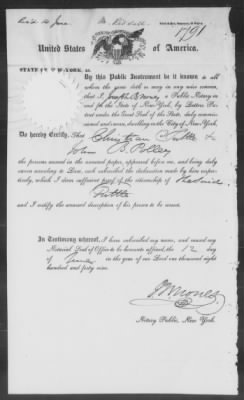 1791
United States of America.
STATE OF NEW-YORK, ss.
By this Public Instrument be it known to all
whom the same doth or may in any wise concern,
that I, Joseph B. Nones, a Public Notary in
and for the State of New-York, by Letters Patent
under the Great Seal of the State, duly commissioned
and sworn, dwelling in the City of New-York,
Do hereby Certify, That Christian &
John B. Polley
the persons named in the annexed paper, appeared before me, and being duly
sworn according to Law, each subscribed the declaration made by him respectively,
which I deem sufficient proof of the citizenship of the said
and I certify the annexed description of his person to be correct.
In Testimony whereof, I have subscribed my name, and caused my
Notarial Seal of Office to be hereunto affixed, the 12 day
of June in the year of our Lord one thousand eight
hundred and forty nine.
J B Nones
Notary Public, New York.